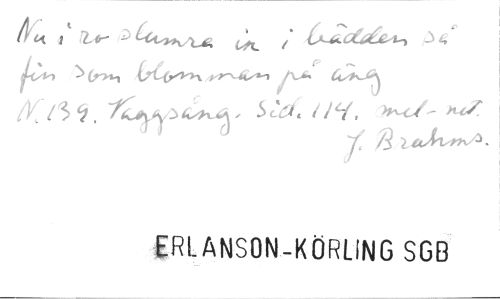 Nu i ro slumra in i bädden så
fin som blomman på äng
N. 139. Vaggsång. Sid. 114. mel-not.
J. Brahms.
ERLANSON-KÖRLING SGB